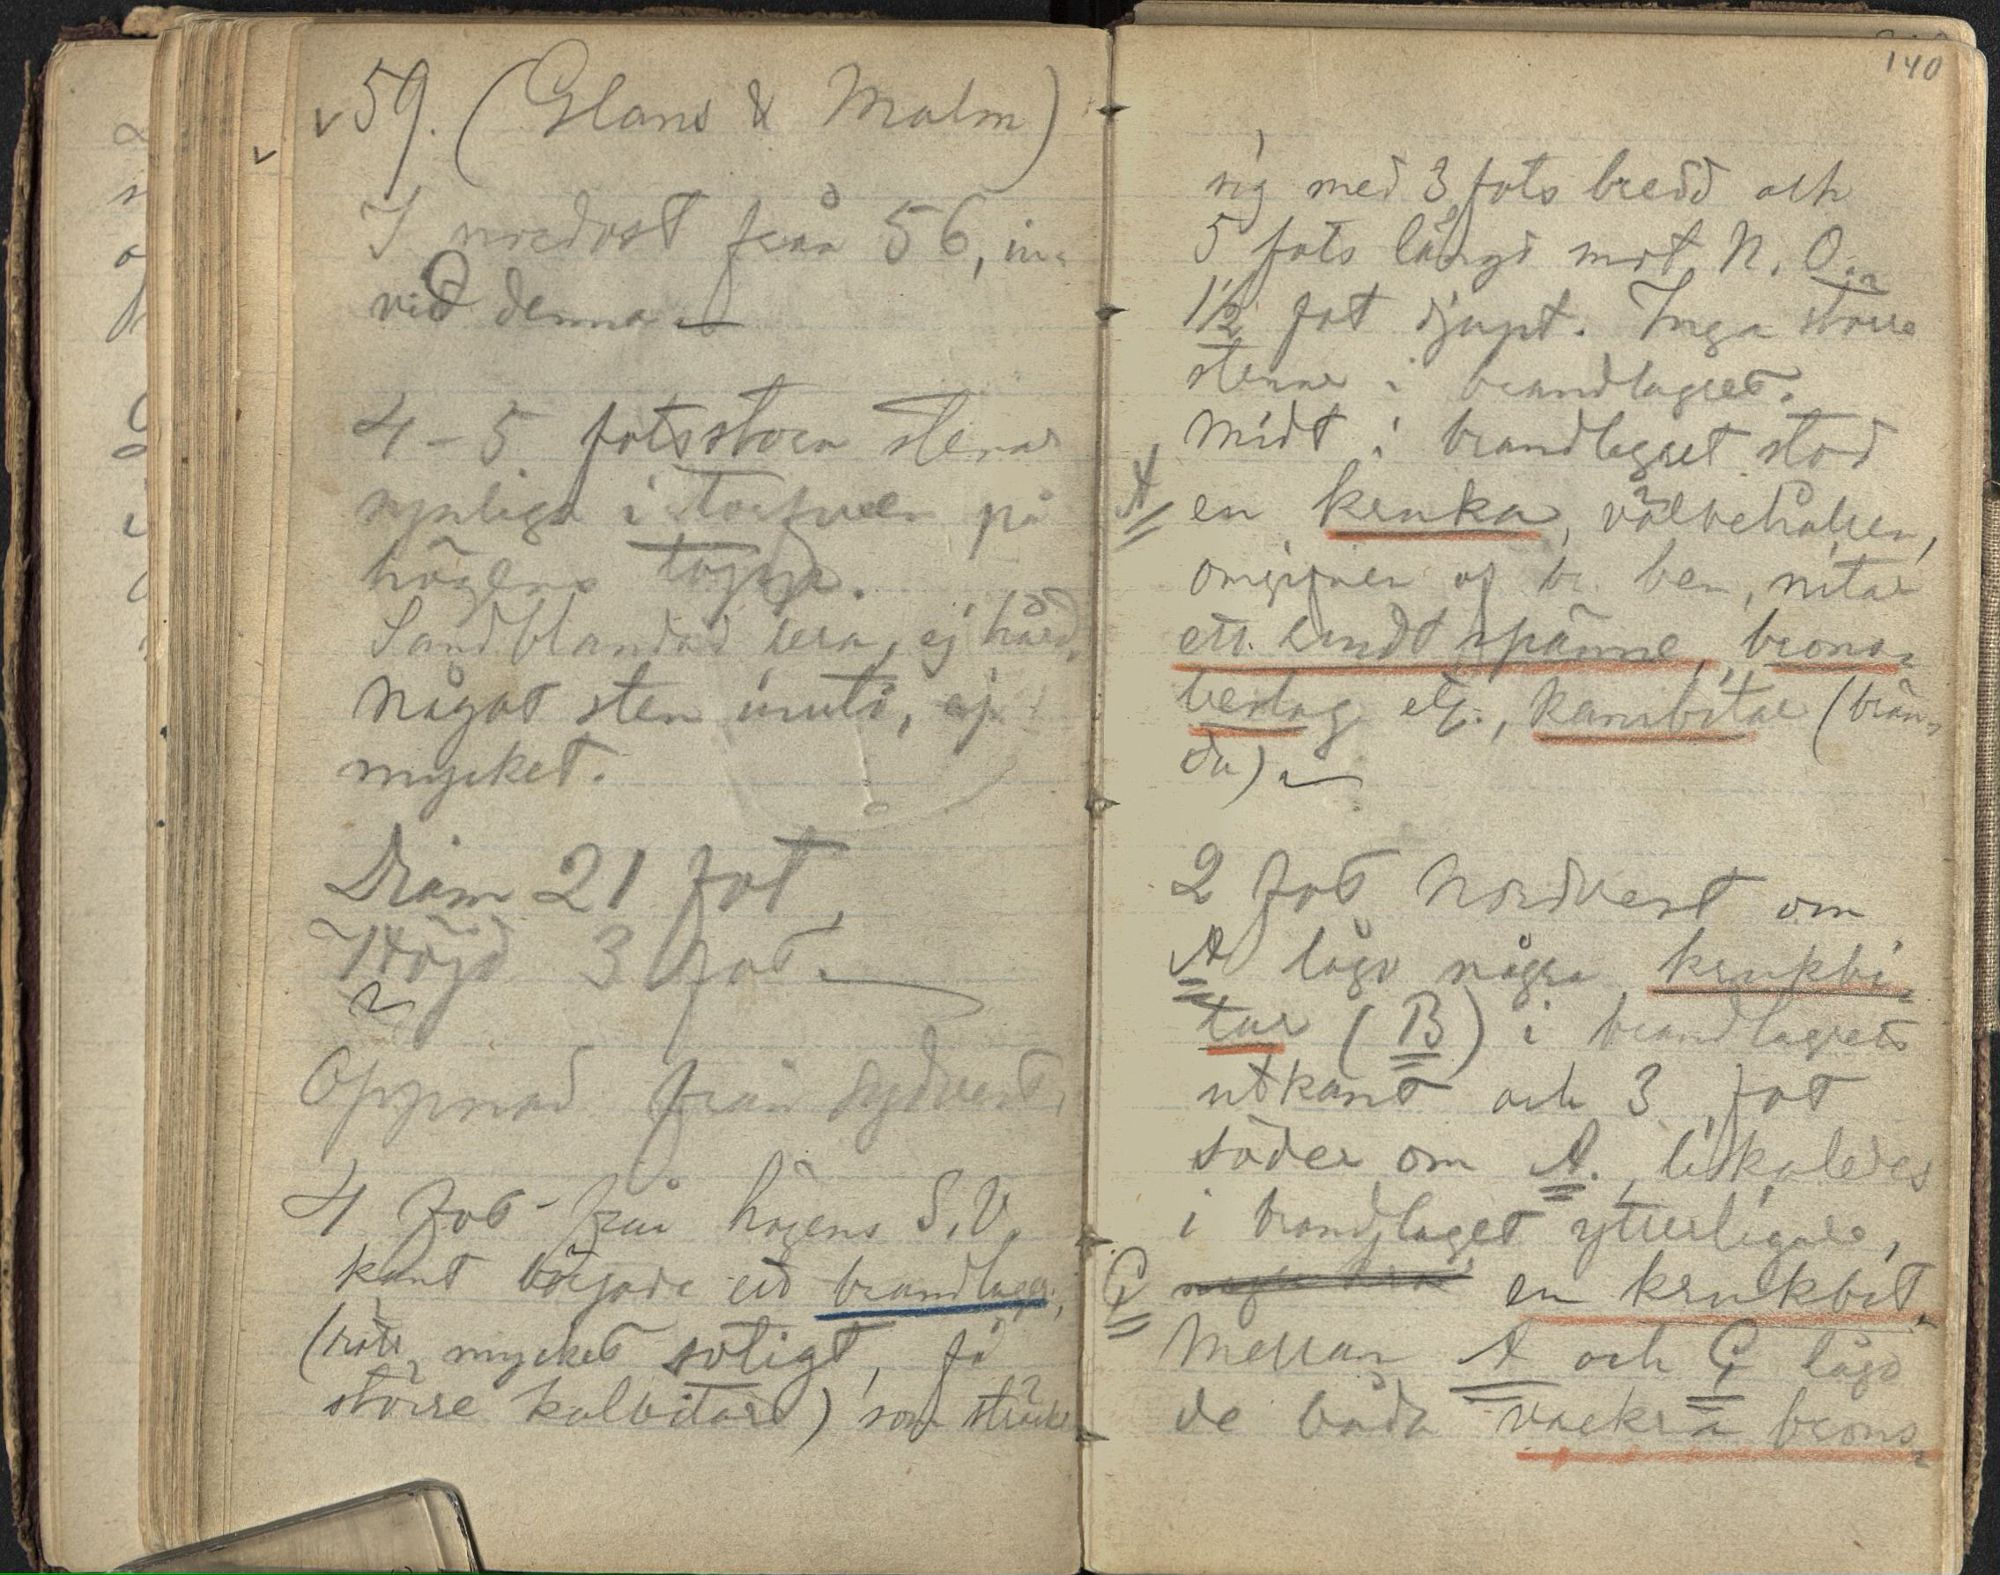 59. (Glans & Malm)
I nordost från 56, in-
vid denna.
4-5 fotsstora stenar
synliga i torfven på
högens topp.
Sandblandad lera, ej hård.
Något sten inuti, ej
mycket.
Diam 21 fot,
Höjd 3 fot.
Öppnad från sydvest.
4 fot från högens S.V.
kant började ett brandlager,
mycket sotigt, få
större kolbitar) som sträckte
140
sig med 3 fots bredd och
5 fots längd mot N. O.
1 1/2 fot djupt. Inga större
stenar i brandlagret.
Midt i brandlagret stod
A en kruka, välbehållen,
omgifven af br. ben, nitar
ett rundt spänne, brons-
beslag etc., kambitar (brän-
da).
2 fot Nordvest om
A lågo några krukbi-
tar (B) i brandlagrets
utkant och 3 fot
söder om A. likaledes
i brandlaget ytterligare,
C en krukbit.
Mellan A och C lågo
de båda vackra brons-